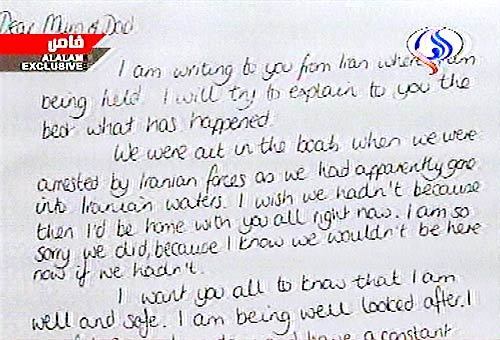 Dear Mum & Dad
خاص
ALALAM
EXCLUSIVE
I am writing to you from Iran where am
being held. I will try to explain to you the
best what has happened.
We were out in the boats when we were
arrested by Iranian forces as we had apparently gone
into Iranian waters. I wish we hadn't because
then I'd be home with you all right now. I am so
sorry we did, because I know we wouldn't be here
now if we hadn't.
I want you all to know that I am
well and safe. I am being well looked after. I
and have a constant